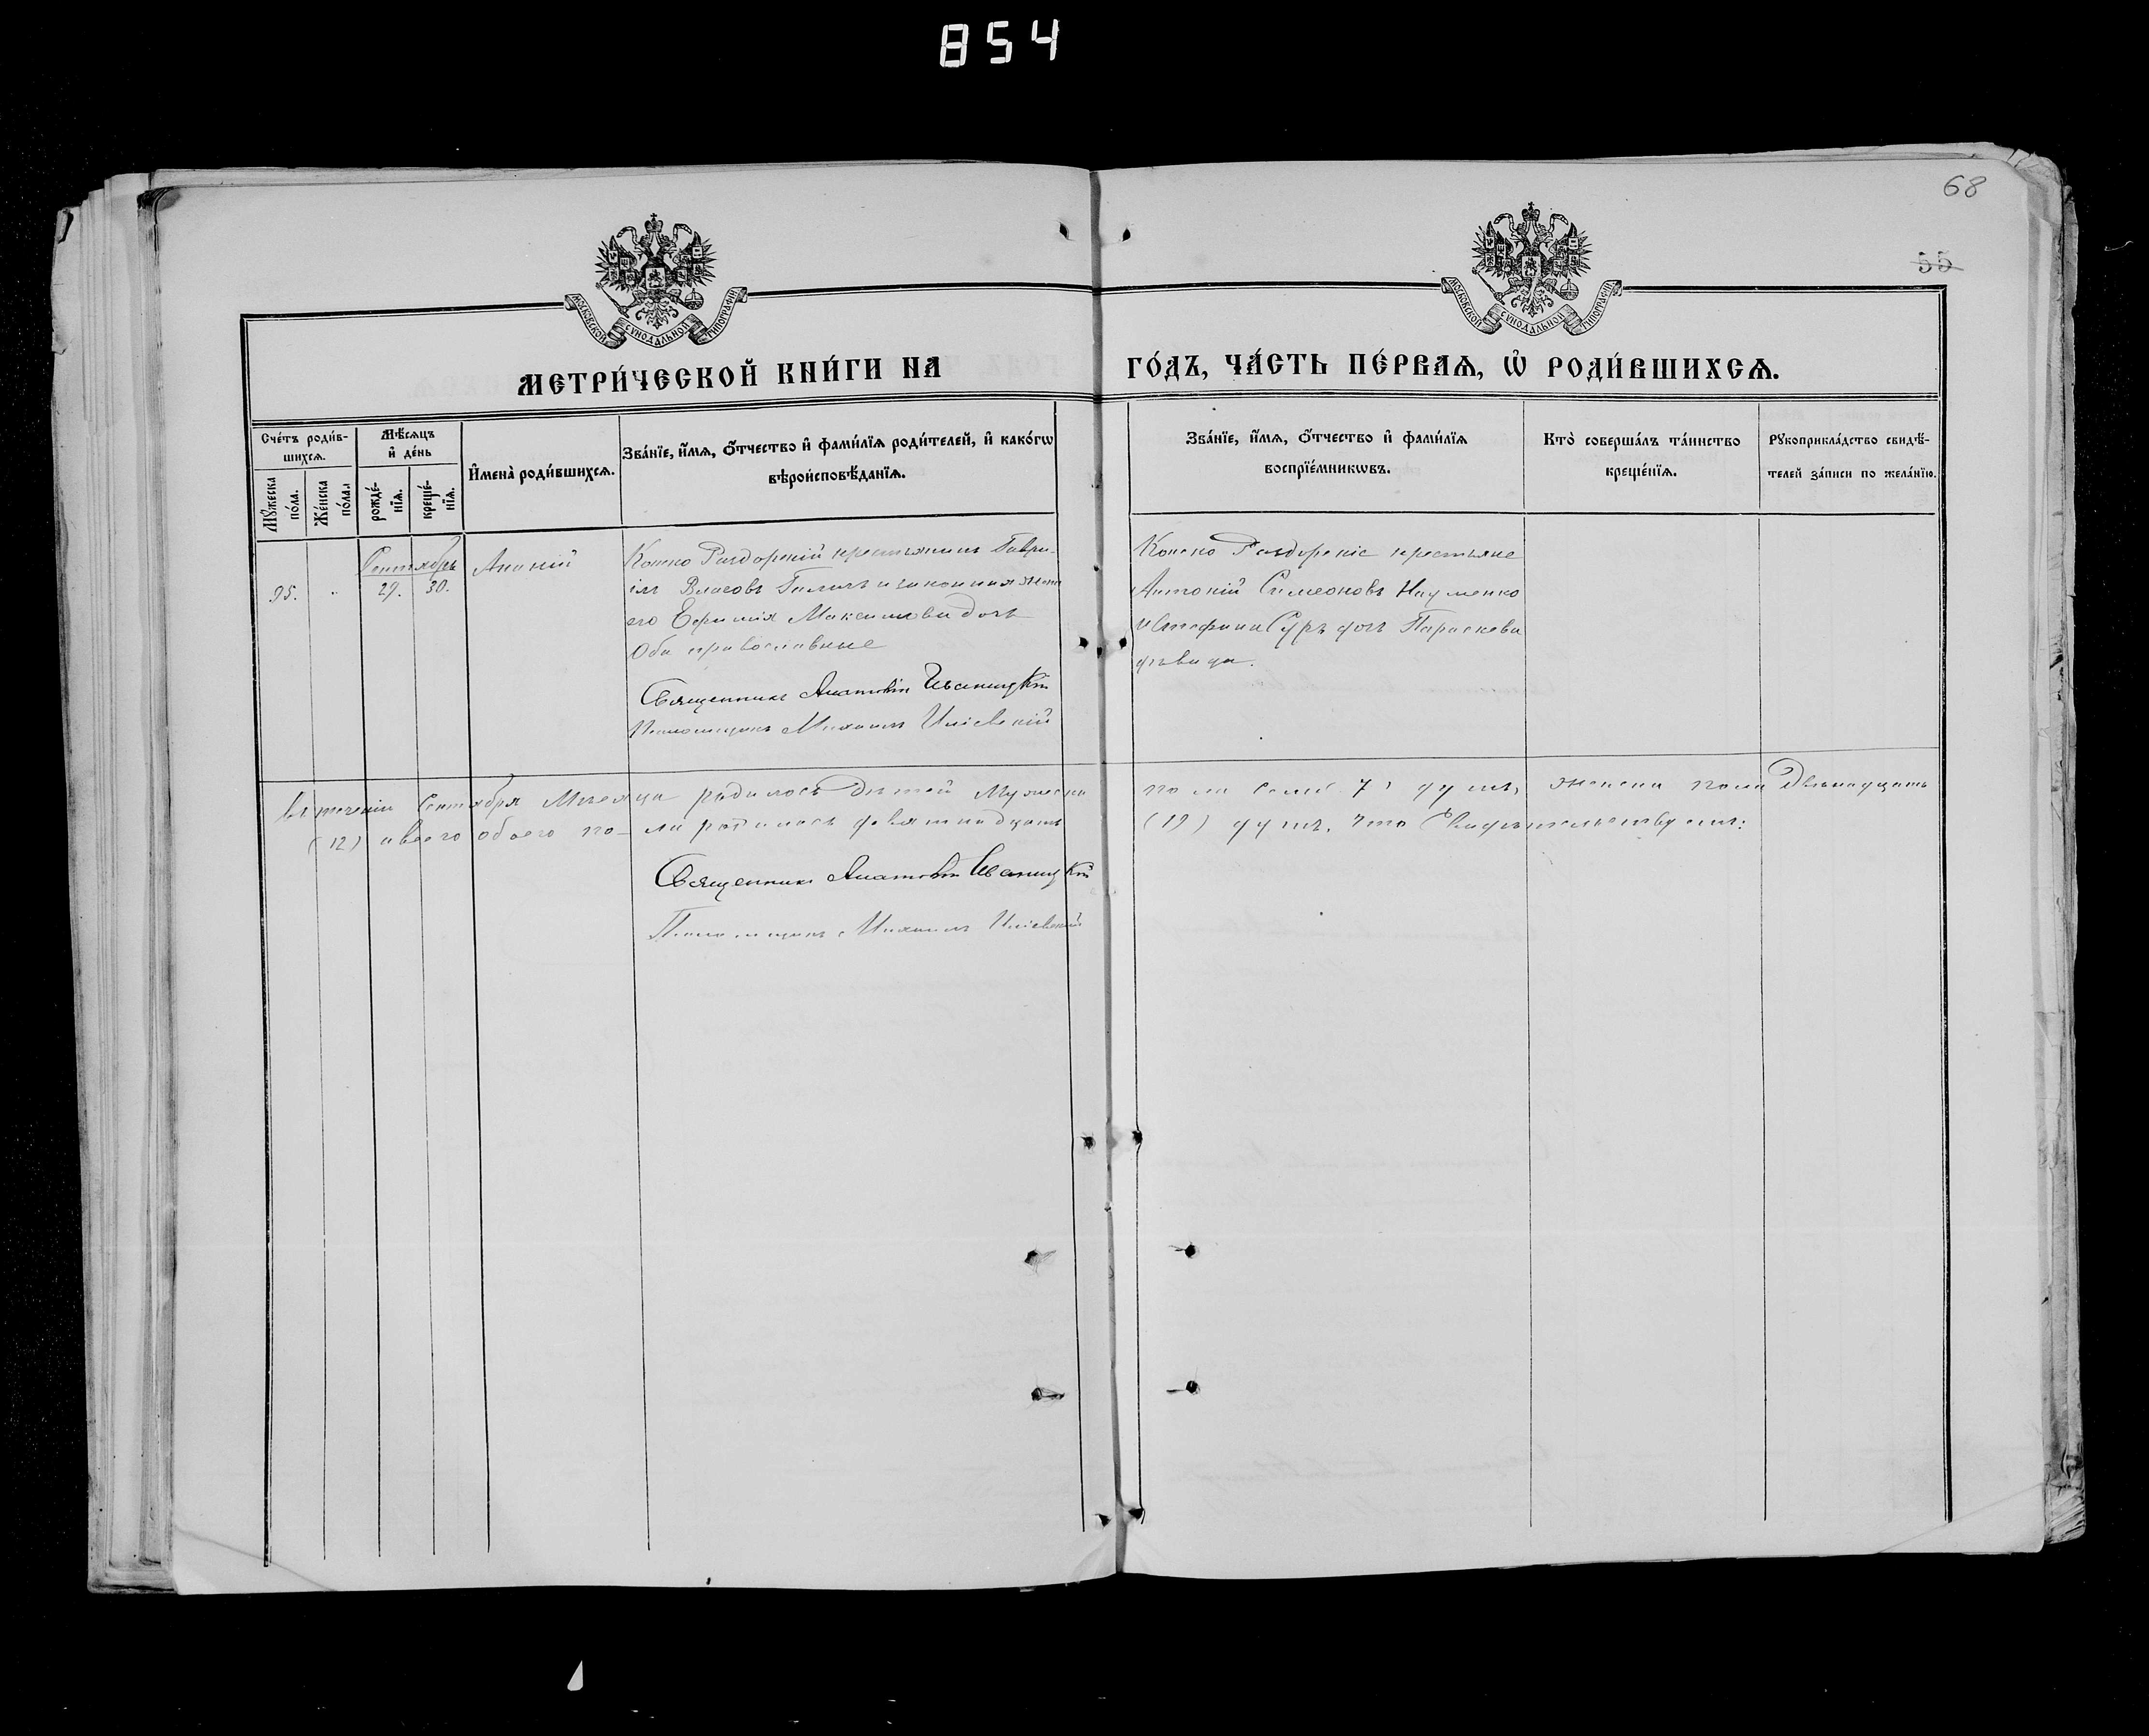 854
68
55
МОСКОВСКОЙ СУНОДАЛЬНОЙ ТИПОГРАФІИ
МОСКОВСКОЙ СУНОДАЛЬНОЙ ТИПОГРАФІИ
МЕТРИ́ЧЕСКОЙ КНИ́ГИ НА
ГО́ДЪ, ЧА́СТЬ ПЕ́РВАѦ, Ѡ҆ РОДИ́ВШИХСѦ.
Сче́тъ роди́в-
шихсѧ.
Мꙋ́жеска по́ла.
Же́нска по́ла.
Мѣ́сѧцъ
и҆ де́нь
рожде́-
нїѧ.
креще́-
нїѧ.
И҆мена̀ роди́вшихсѧ.
Зва́нїе, и҆́мѧ, ѻ҆́тчество и҆ фами́лїѧ роди́телей, и҆ како́гѡ
вѣроисповѣ́данїѧ.
Зва́нїе, и҆́мѧ, ѻ҆́тчество и҆ фами́лїѧ
воспрїе́мникѡвъ.
Кто̀ соверша́лъ та́инство
креще́нїѧ.
Рꙋкоприкла́дство свидѣ́-
телей за́писи по жела́нїю.
Сентябрь
95. „ 29. 30.
Ананій
Конско Раздорскій крестьянинъ Гаври-
илъ Власовъ и законная жена
его Евфимія Максимова дочь
Оба православные
Священникъ Анатолій Иваницкій
Псаломщикъ Михаилъ
Конско Раздорскіе крестьяне
Антоній Симеоновъ Науменко
и дочь Параскева
дѣвица.
Въ теченіи Сентября Мѣсяца родилось дѣтей Мужеска
пола семь 7) душъ, женска пола Двѣнадцать
(12) а всего обоего по-ла родилось девятнадцать
(19) душъ. Что свидѣтельствуемъ:
Священникъ Анатолій Иваницкій
Псаломщикъ Михаилъ